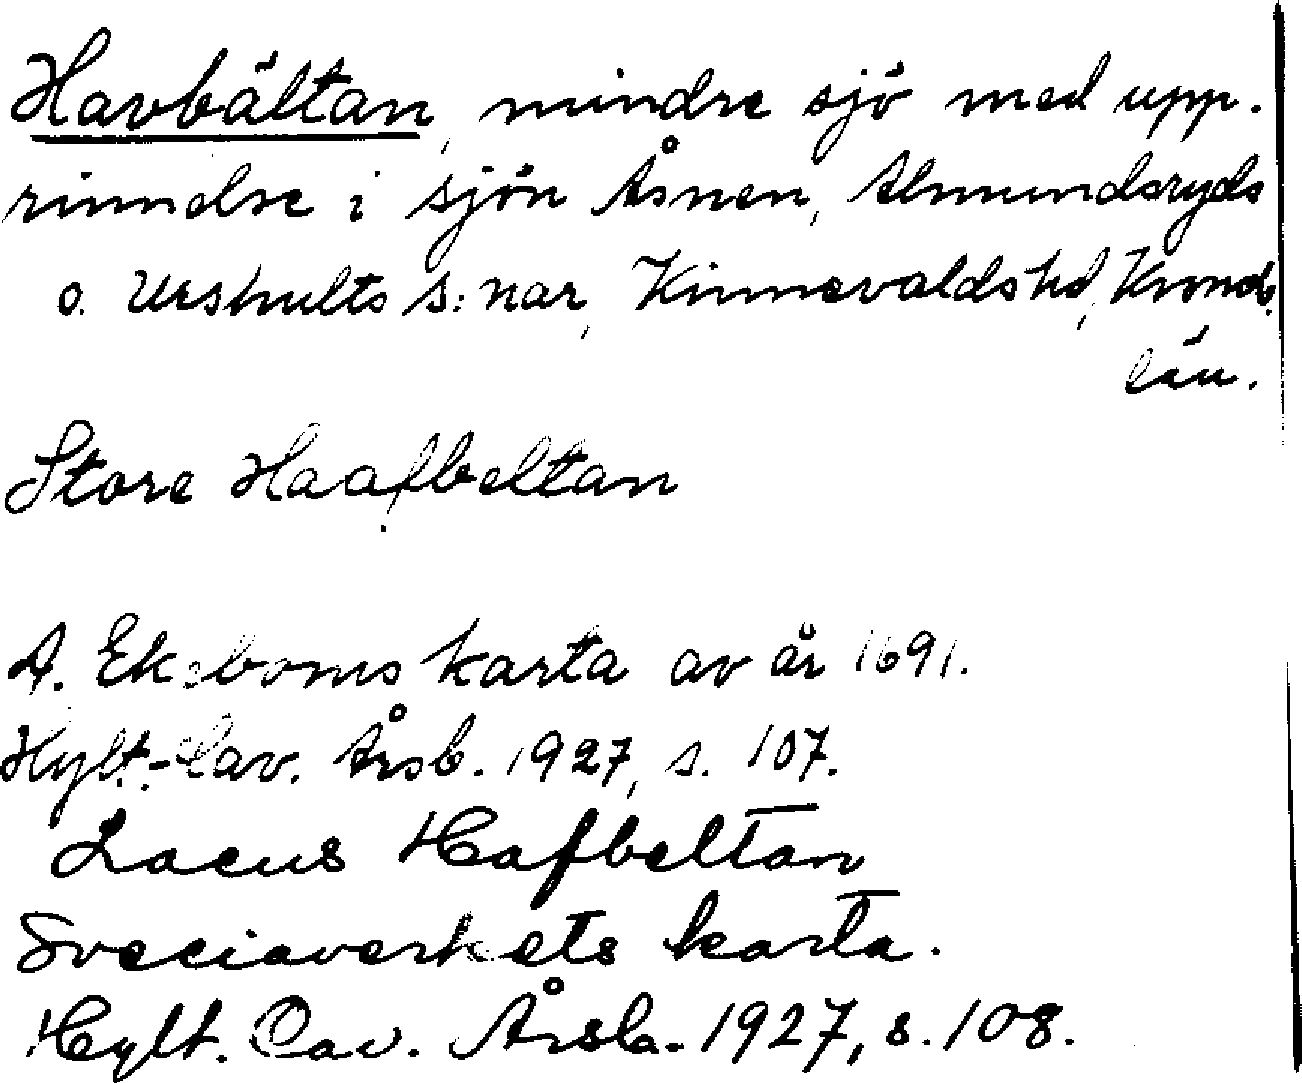 Havbältan, mindre sjö med upp-
rinnelse i sjön Åsnen, Almundsryds
o. Urshults s:nar, Kinnevalds hd, Kronob.
län.
Store Haafbeltan
A. Ekeboms karta av år 1691.
Hylt.-Cav. Årsb. 1927, s. 107.
Lacus Hafbeltan
Sveciaverkets karta.
Hylt. Cav. Årsb. 1927, s. 108.